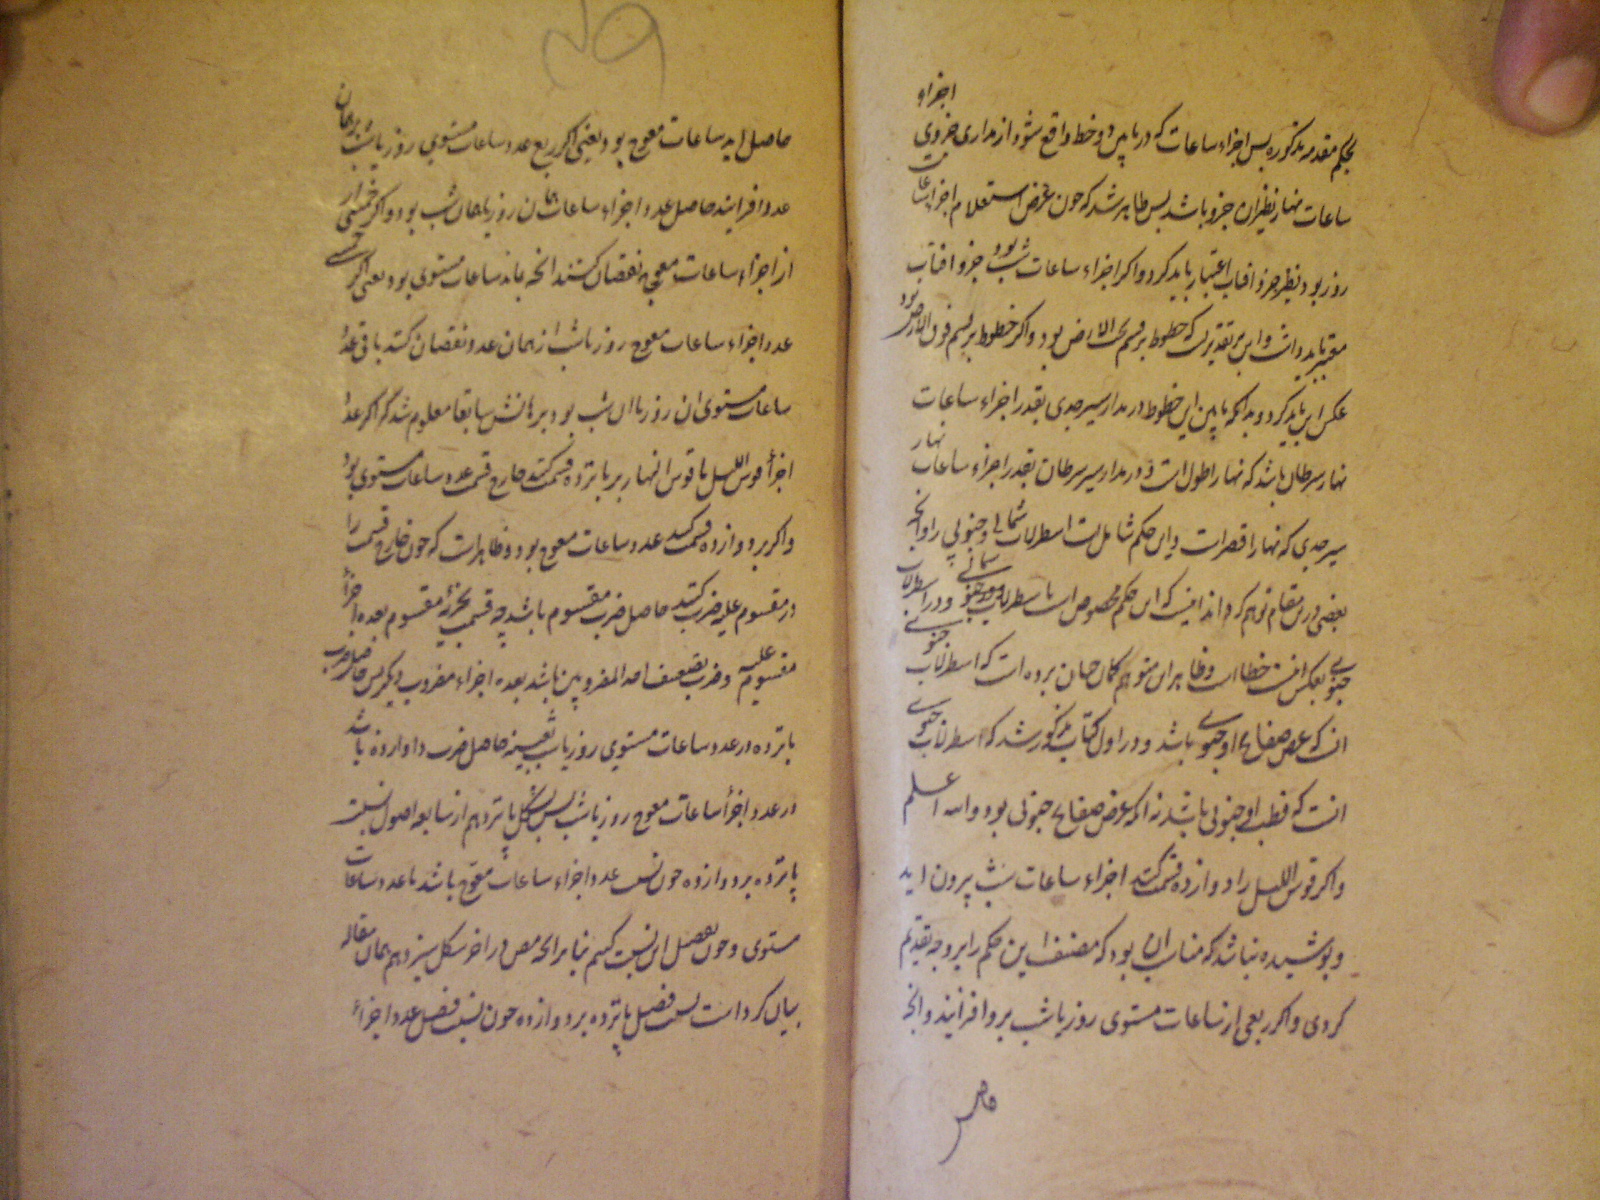 اجزاء
بحکم مقدمه مذکوره پس اجزاء ساعات که در مابین دو خط واقع شود از مداری جزوی
ساعات نهار نظیر آن جزو باشد پس ظاهر شد که چون غرض استعلام اجزاء ساعات
روز بود نظیر جزو افتاب اعتبار باید کرد و اکر اجزاء ساعات شب بود جزو افتاب
معتبر باید داشت و این بر تقدیریست که خطوط بر قسم تحت الارض بود و اکر خطوط بر قسم فوق الارض بود
عکس این باید کرد و بدانکه مابین این خطوط در مدار سر جدی بقدر اجزاء ساعات
نهار سرطان باشد که نهار اطول است و در مدار سر سرطان بقدر اجزاء ساعات نهار
سر جدی که نهار اقصر است و این حکم شامل است اسطرلاب شمالی و جنوبی را و انچه
بعضی درین مقام توهم کرده اند انست که این حکم مخصوص است باسطرلاب شمالی و در اسطرلاب
جنوبی بعکس انست خطا است و ظاهرا این متوهم کمان چنان برده است که اسطرلاب جنوبی
انست که عرض صفایح او جنوبی باشد و در اول کتاب مذکور شد که اسطرلاب جنوبی
انست که قطب او جنوبی باشد نه انکه عرض صفایح جنوبی بود والله اعلم
و اکر قوس اللیل را دوازده قسمت کنند اجزاء ساعات شب بیرون اید
و پوشیده نباشد که مناسب ان بود که مصنف این حکم را بر وجه تقدیم
کردی و اکر ربعی از ساعات مستوی روز یا شب برو افزایند و انچه
حاصل
حاصل اید ساعات معوج بود یعنی اکر ربع عدد ساعات مستوی روز یا شب بر همان
عدد افزایند حاصل عدد اجزاء ساعات همان روز یا همان شب بود و اکر خمسی از
از اجزاء ساعات معوجه نقصان کنند انچه بماند ساعات مستوی بود یعنی اکر خمس
عدد اجزاء ساعات معوج روز یا شب از همان عدد نقصان کنند باقی عدد
ساعات مستوی ان روز یا ان شب بود برهانش سابقا معلوم شد که اکر عدد
اجزاء قوس اللیل یا قوس النهار بر پانزده قسمت کنند خارج قسمت عدد ساعات مستوی بود
و اکر بر دوازده قسمت کنند عدد ساعات معوج بود و ظاهر است که چون خارج قسمت را
در مقسوم علیه ضرب کنند حاصل ضرب مقسوم باشد چه قسمت تجزیه مقسوم بعده اجزاء
مقسوم علیه و ضرب تضعیف احد المضروبین باشد بعده اجزاء مضروب دیکر پس حاصل ضرب
پانزده در عدد ساعات مستوی روز یا شب بعینه حاصل ضرب دوازده باشد
در عدد اجزاء ساعات معوج روز یا شب پس بشکل پانزدهم از سابعه اصول نسبت
پانزده بر دوازده چون نسبت عدد اجزاء ساعات معوج باشد با عدد ساعات
مستوی و چون تفصیل این نسبت کنیم بنا بر انچه مص در اخر شکل سیزدهم همان مقاله
بیان کرده است نسبت فضل پانزده بر دوازده چون نسبت فضل عدد اجزاء